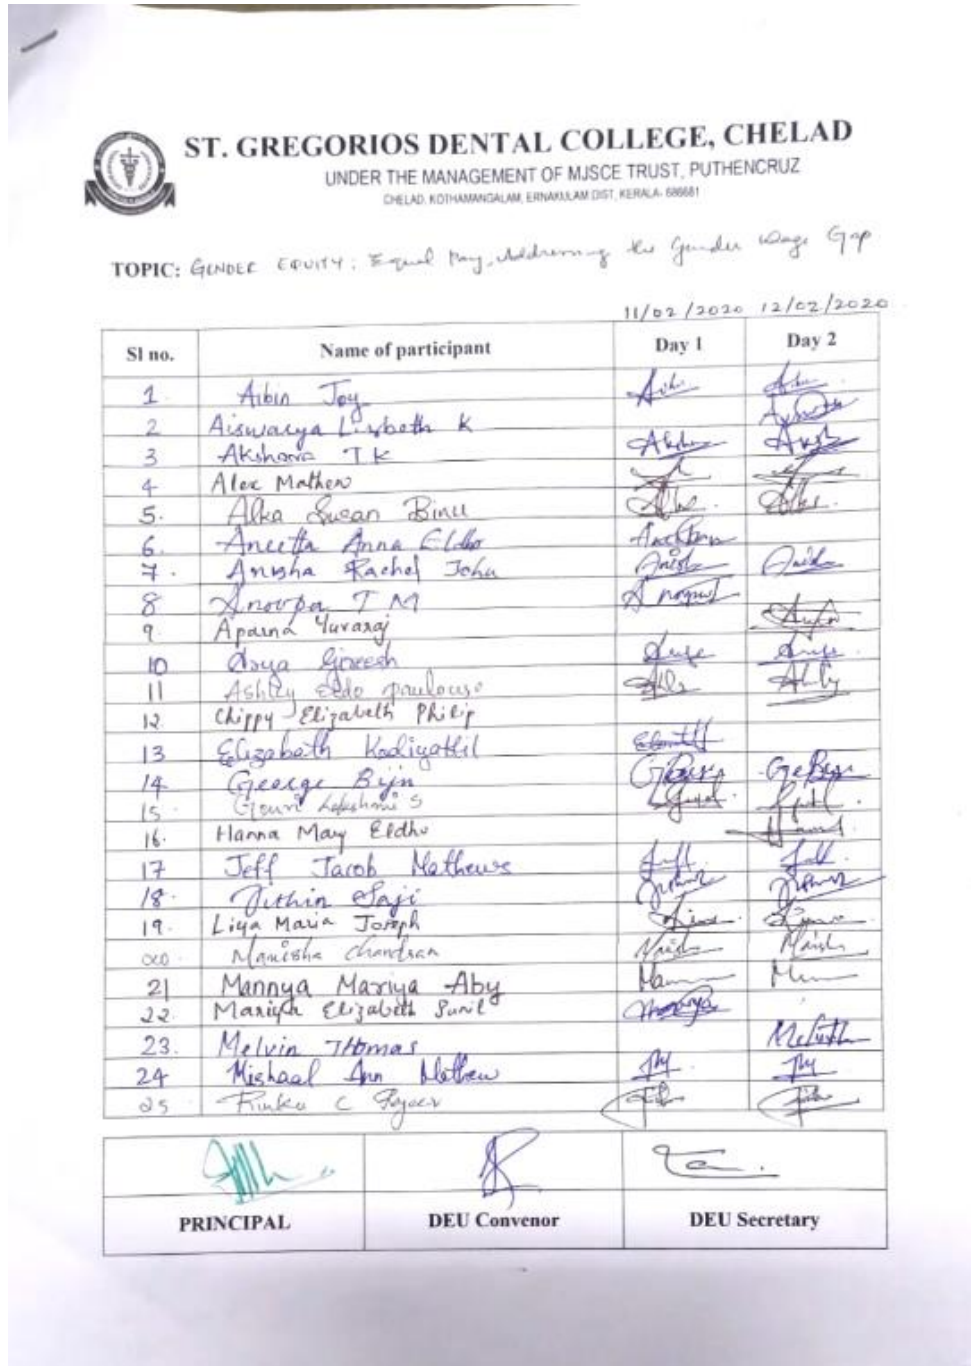 ST. GREGORIOS DENTAL COLLEGE, CHELAD
UNDER THE MANAGEMENT OF MJSCE TRUST, PUTHENCRUZ
CHELAD, KOTHAMANGALAM, ERNAKULAM DIST, KERALA- 686681
TOPIC: GENDER EQUITY: Equal Pay, Addressing the Gender Wage Gap
11/02/2020 12/02/2020
Sl no. Name of participant Day 1 Day 2
1 Aibin Joy
2 Aiswarya Lisbeth K
3 Akshara T K
4 Alex Mathew
5. Alka Susan Binu
6. Aneetta Anna Eldho
7. Anisha Rachel John
8 Anoopa T M
9. Aparna Yuvaraj
10 Asya Gireesh
11 Ashley Eldo Paulouse
12 Chippy Elizabeth Philip
13 Elizabeth Kadiyattil
14 George Biju
15 Gouri Lekshmi S
16. Hanna May Eldho
17 Jeff Jacob Mathews
18. Jithin Saji
19. Liya Maria Joseph
20. Manisha Chandran
21 Mannya Mariya Aby
22. Mariya Elizabeth Sunil
23. Melvin Thomas
24 Mishaal Ann Mathew
25 C
PRINCIPAL DEU Convenor DEU Secretary